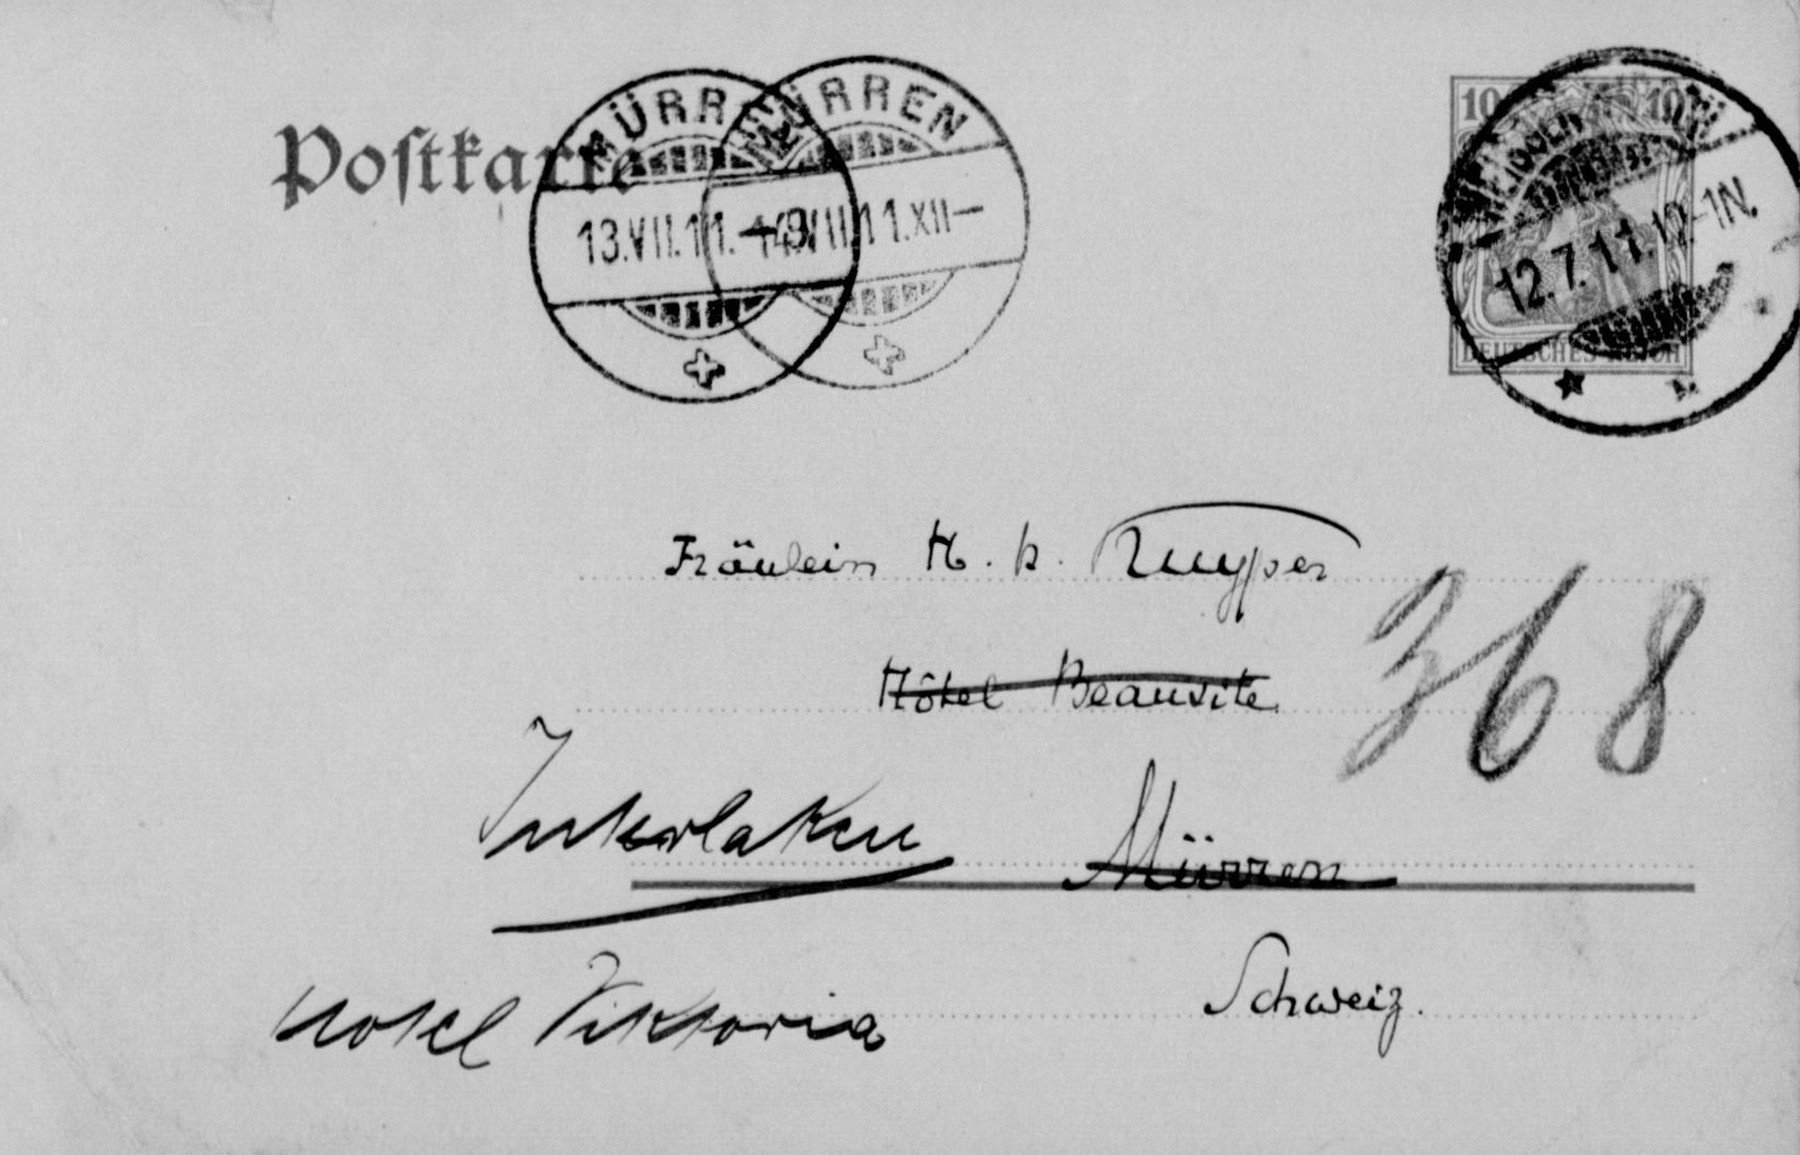 Postkarte
MÜRREN
13.VII.11.-9
MÜRREN
14.VII.11.XII-
10 10
12.7.11.12-1N.
DEUTSCHES REICH
Fräulein H. k. Kuyper
Hôtel Beausite
368
Interlaken Mürren
Hotel Viktoria Schweiz.